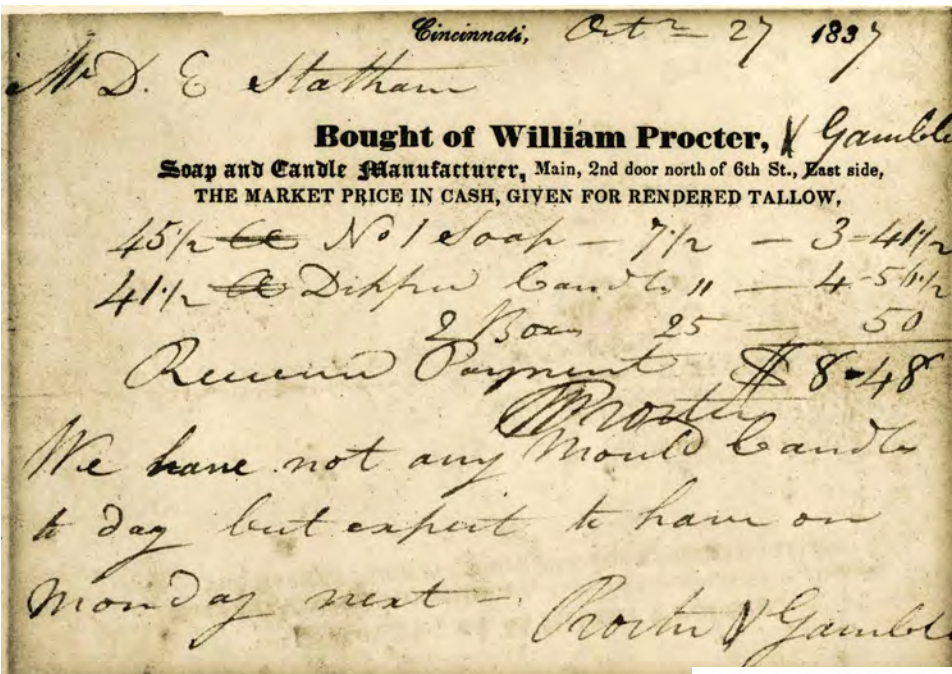 Cincinnati, Octr 27 1837
Mr D. E Statham
Bought of William Procter, & Gamble
Soap and Candle Manufacturer, Main, 2nd door north of 6th St., East side,
THE MARKET PRICE IN CASH, GIVEN FOR RENDERED TALLOW,
45 1/2 No 1 Soap — 7 1/2 — 3-41 1/2
41 1/2 Dipped Candles 11 — 4-56 1/2
2 Boxes 25 — 50
Received Payment $ 8-48
Procter
We have not any Mould Candles
to day but expect to have on
Monday next —
Procter & Gamble